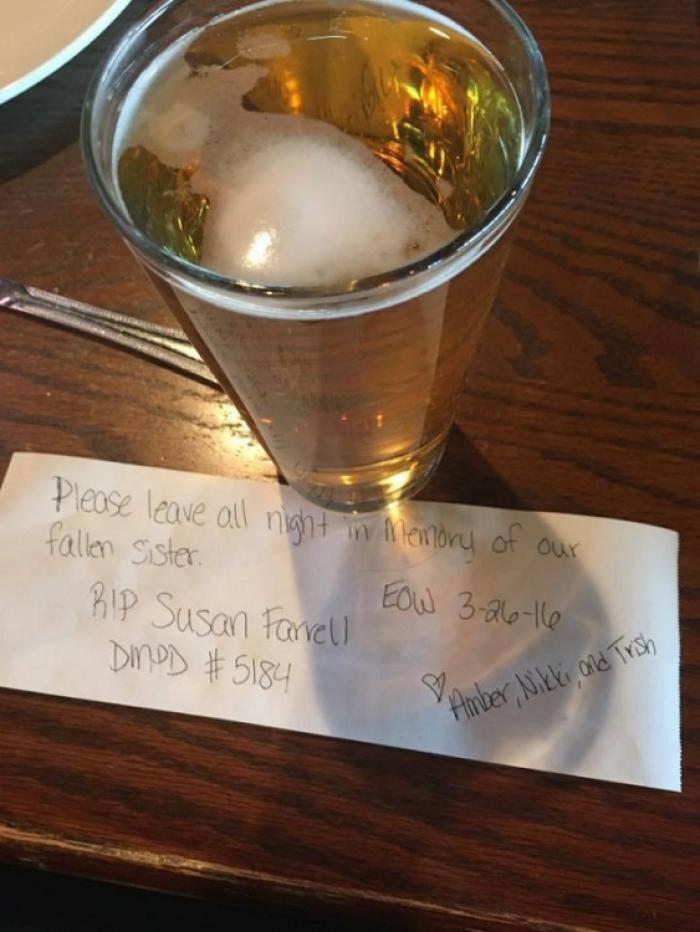 Please leave all night in Memory of our
fallen sister.
RIP Susan Farrell
EOW 3-26-16
DMPD #5184
♡ Amber, Nikki, and Trish